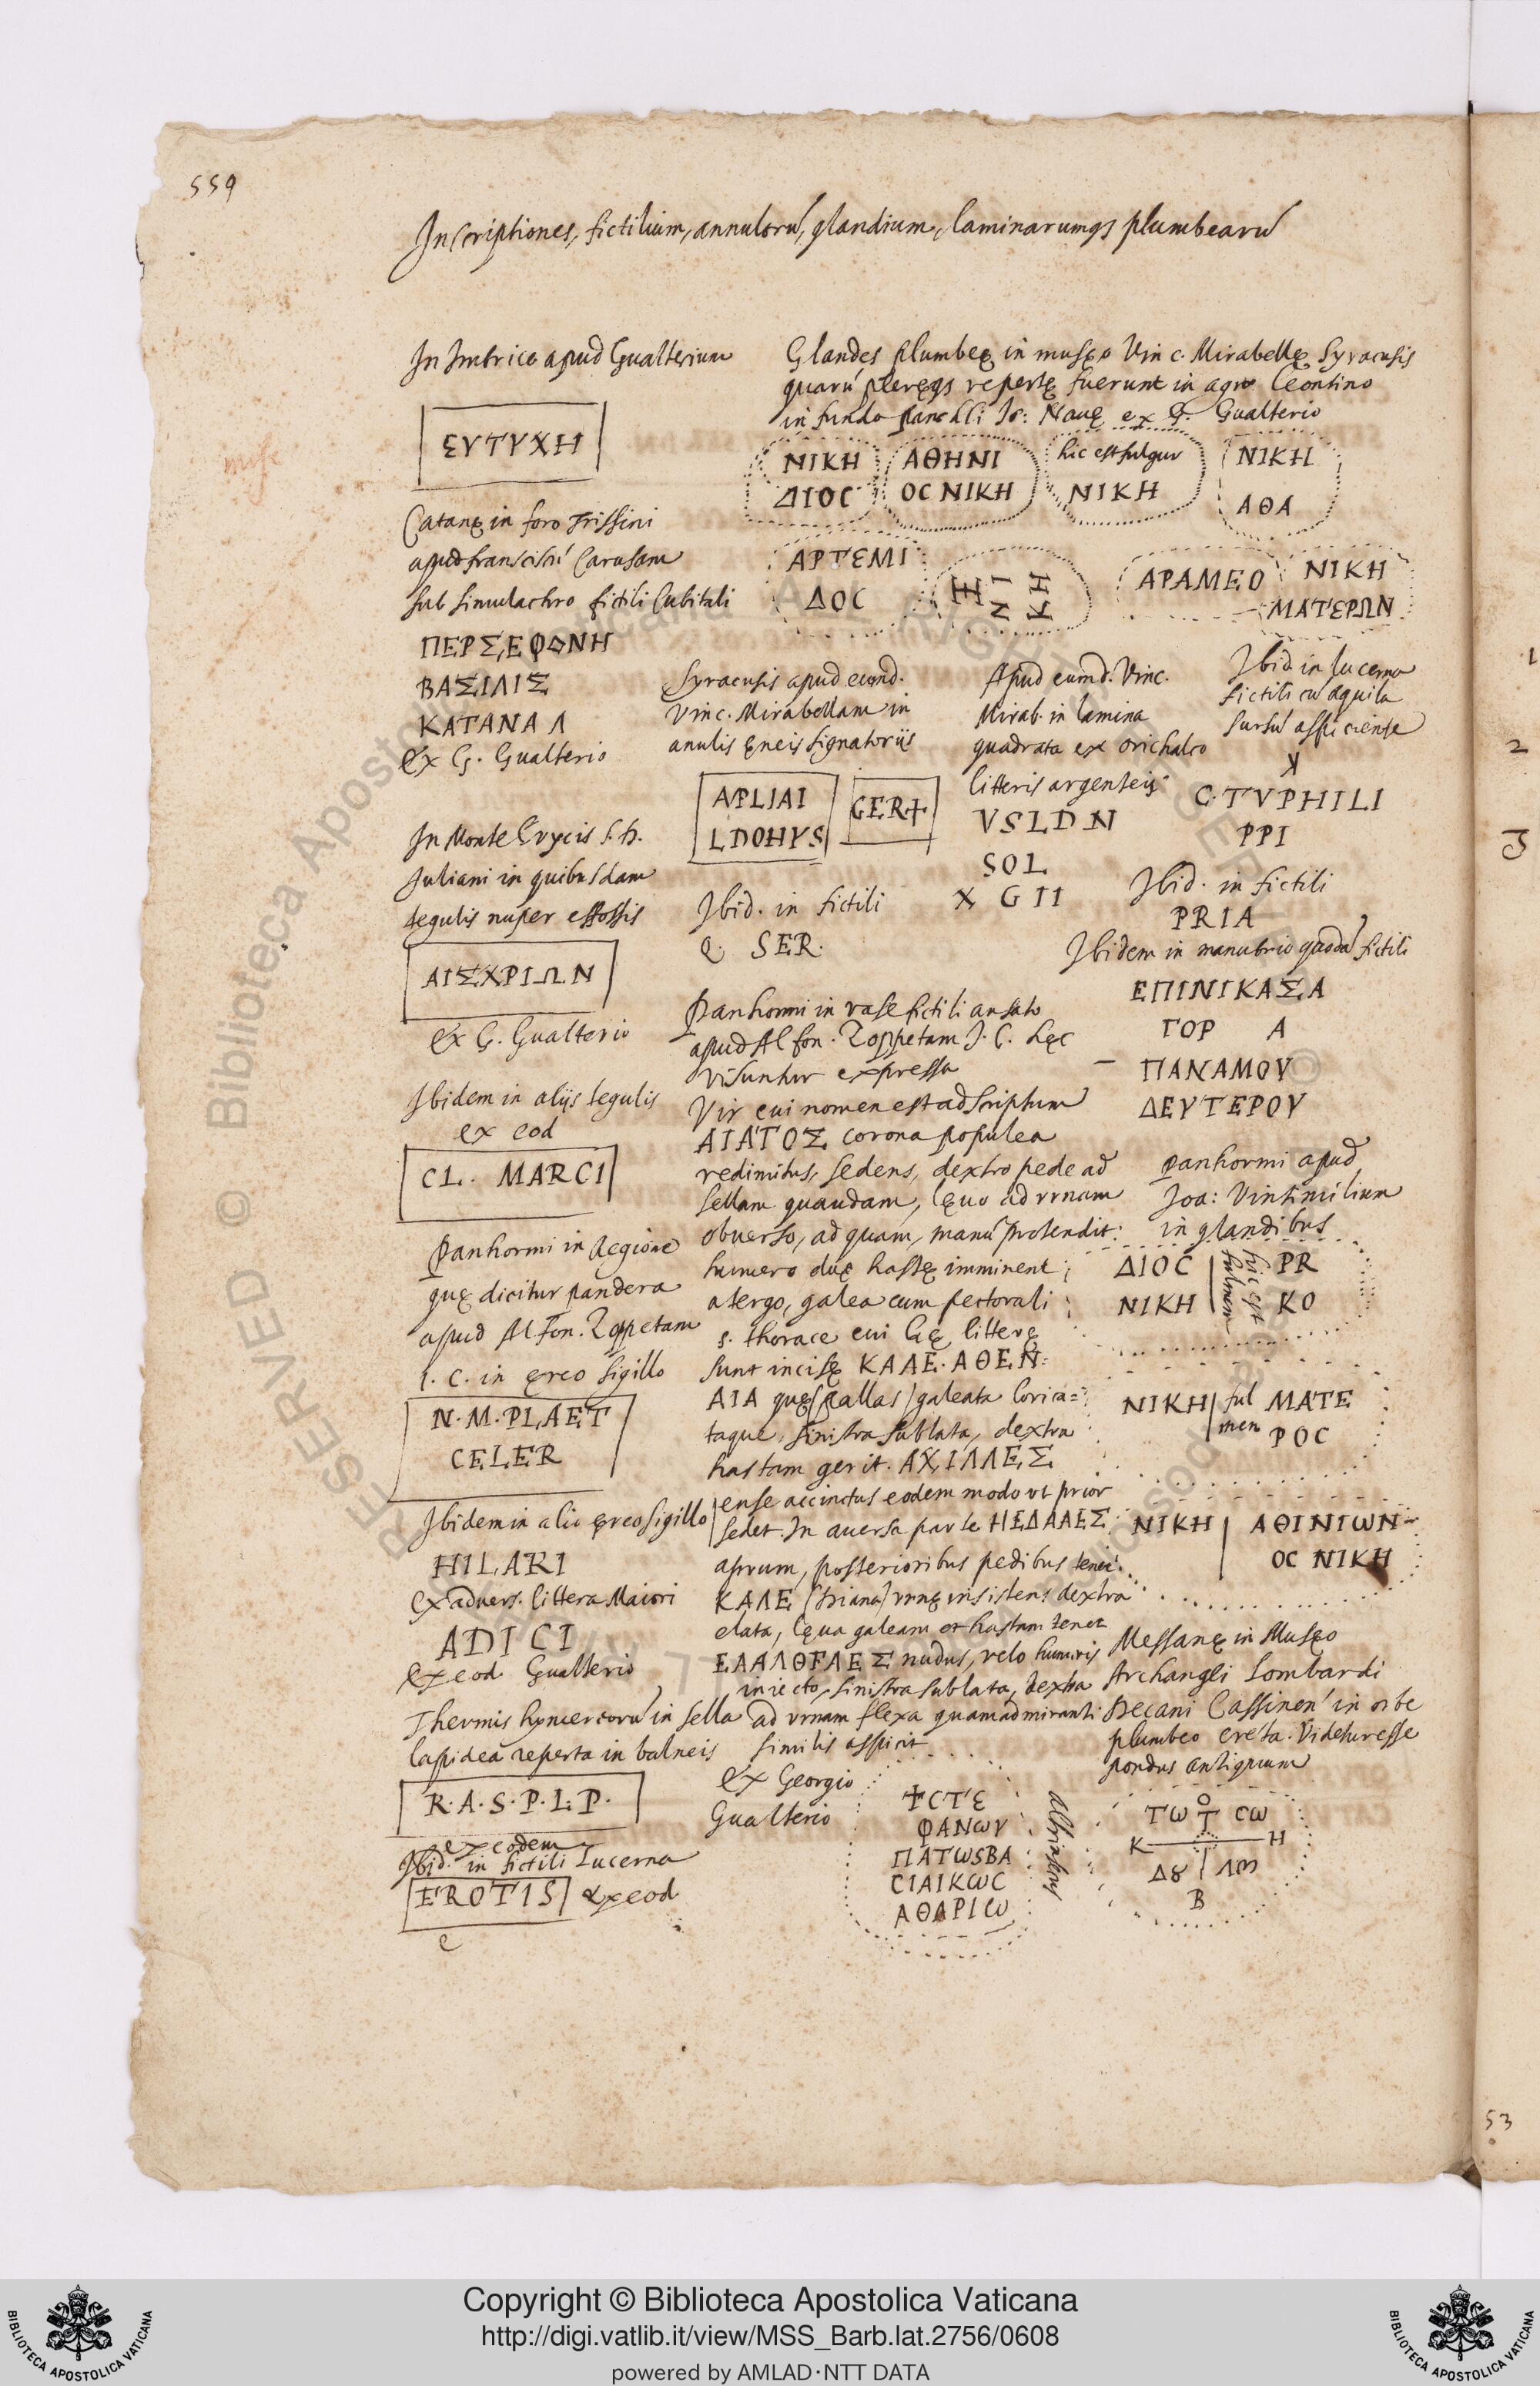 559
Inscriptiones, fictilium, annulorũ, glandium, laminarumqs plumbearũ
In Imbrice apud Gualterium
ΕΥΤΥΧΗ
Catanę in foro
apud Carusam
sub simulachro fictili Cubitali
ΠΕΡΣΕΦΟΝΗ
ΒΑΣΙΛΙΣ
ΚΑΤΑΝΑΛ
Ex G. Gualterio
In Monte Erycis S. h.
Iuliani in quibusdam
tegulis nuper effossis
ΑΙΣΧΡΙΩΝ
Ex G. Gualterio
Ibidem in alijs tegulis
ex eod
CL. MARCI
Panhormi in Regione
quę dicitur pandera
apud Alfon. Zoppetam
I. C. in ęreo sigillo
N. M. PLAET
CELER
Ibidem in alio ęreo sigillo
HILARI
Ex advers. littera Maiori
ADICI
ex eod Gualterio
Thermis hymercorũ in sella
lapidea reperta in balneis
R. A. S. P. L. P.
ex eodem
Ibid. in fictili Lucerna
EROTIS ex eod
Glandes plumbeę in musęo Vinc. Mirabellę Syracusis
quarũ pleręqs repertę fuerunt in agro Leontino
in fundo Io: Nauę ex G. Gualterio
ΝΙΚΗ
ΔΙΟC
ΑΘΗΝΙ
ΟC ΝΙΚΗ
hic est fulgur
ΝΙΚΗ
ΝΙΚΗ
ΑΘΑ
ΑΡΤΕΜΙ
ΔΟC
ΝΙ
ΚΗ
ΑΡΑΜΕΟ
ΝΙΚΗ
ΜΑΤΕΡΩΝ
Syracusis apud eumd.
Vinc. Mirabellam in
anulis ęneis signatoriis
APLIAI
LDOHYS
CER+
Ibid. in fictili
Q. SER.
Apud eumd. Vinc.
Mirab. in lamina
quadrata ex orichalco
litteris argenteis
VSLDN
SOL
X GII
Ibid. in lucerna
fictili cũ aquila
sursũ aspiciente
C. TVPHILI
PPI
Ibid. in fictili
PRIA
Ibidem in manubrio quodã fictili
ΕΠΙΝΙΚΑΣΑ
ΓΟΡ Α
ΠΑΝΑΜΟΥ
ΔΕΥΤΕΡΟΥ
Panhormi in vase fictili ansato
apud Alfon. Zoppetam I. C. hęc
visuntur expressa
Vir cui nomen est adscriptum
ΑΙΑΤΟΣ corona populea
redimitus, sedens, dextro pede ad
sellam quandam, lęuo ad vrnam
obuerso, ad quam, manũ protendit.
humero duę hastę imminent
a tergo, galea cum pectorali
s. thorace cui hę litterę
sunt incisę ΚΑΛΕ. ΑΘΕΝ:
ΑΙΑ quę (pallas) galeata lorica=
taque, sinistra sublata, dextra
hastam gerit. ΑΧΙΛΛΕΣ
ense accinctus eodem modo vt prior
sedet. In auersa parte ΗΕΔΑΛΕΣ
aprum, posterioribus pedibus tenet.
ΚΑΛΕ (Diana) vrnę insistens dextra
elata, lęua galeam et hastam tenet
ΕΛΑΛΘFΛΕΣ nudus, velo humeris
iniecto, sinistra sublata, dextra
ad vrnam flexa quam admiranti
similis aspicit
Ex Georgio
Gualterio
ϮCTE
ΦΑΝΩΥ
ΠΑΤΩSΒΑ
CΙΛΙΚΩC
ΑΘΑΡΙΩ
Panhormi apud
Ioa: Vintimilium
in glandibus
ΔΙΟC
ΝΙΚΗ
hic est
fulmen
PR
KO
ΝΙΚΗ
ful
men
ΜΑΤΕ
ΡΟC
ΝΙΚΗ
ΑΘΙΝΙΩΝ
ΟC ΝΙΚΗ
Messanę in Musęo
Archangeli Lombardi
Decani Cassinen' in orbe
plumbeo ereta. Videtur esse
pondus antiquum
ΤΩ Τ CΩ
Κ Η
Δ8 ΛΩ
Β
1
2
3
53
RESERVED © Biblioteca Apostolica Vaticana
Copyright © Biblioteca Apostolica Vaticana
http://digi.vatlib.it/view/MSS_Barb.lat.2756/0608
powered by AMLAD·NTT DATA
BIBLIOTECA APOSTOLICA VATICANA
BIBLIOTECA APOSTOLICA VATICANA